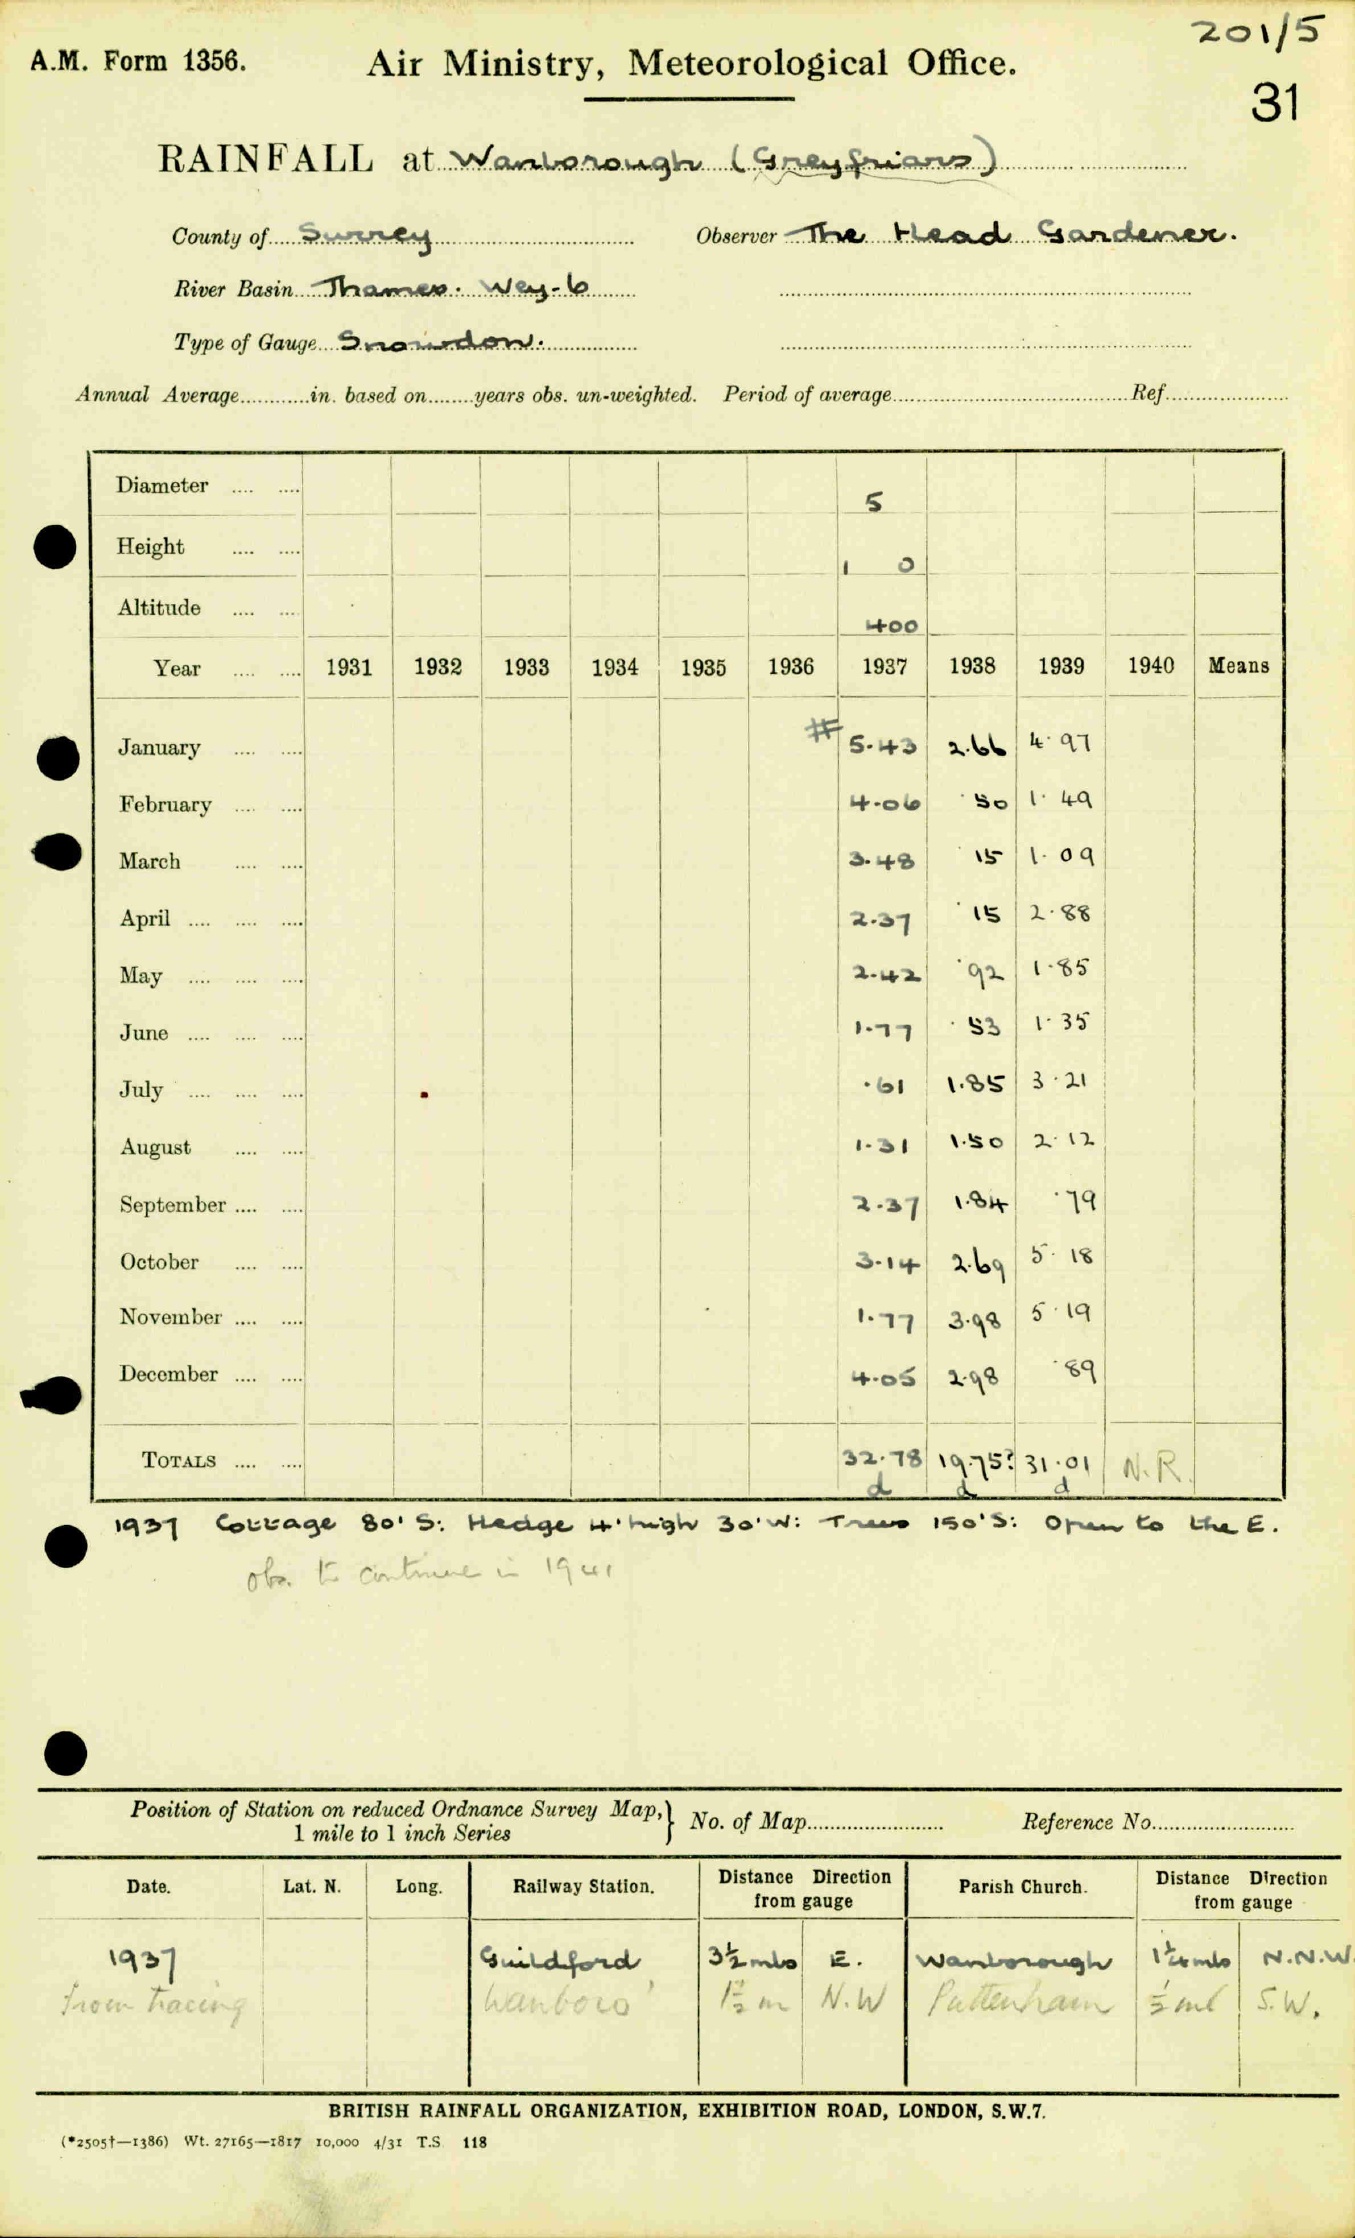 201/5
A.M. Form 1356. Air Ministry, Meteorological Office.
31
RAINFALL at Wanborough (Greyfriars)
County of Surrey Observer The Head Gardener.
River Basin Thames. Wey-6
Type of Gauge Snowdon.
Annual Average............in. based on........years obs. un-weighted. Period of average............ Ref............
Diameter .... .... 5
Height .... .... 1 0
Altitude .... .... 400
Year .... .... 1931 1932 1933 1934 1935 1936 1937 1938 1939 1940 Means
January .... .... # 5.43 2.66 4.97
February .... .... 4.06 .50 1.49
March .... .... 3.48 15 1.09
April .... .... .... 2.37 .15 2.88
May .... .... .... 2.42 .92 1.85
June .... .... .... 1.77 .53 1.35
July .... .... .... .61 1.85 3.21
August .... .... 1.31 1.50 2.12
September .... .... 2.37 1.84 .79
October .... .... 3.14 2.69 5.18
November .... .... 1.77 3.98 5.19
December .... .... 4.05 2.98 .89
TOTALS .... .... 32.78 19.75? 31.01 N.R.
d d d
1937 Cottage 80' S: Hedge 4' high 30' W: Trees 150' S: Open to the E.
obs. to continue in 1941
Position of Station on reduced Ordnance Survey Map, } No. of Map............ Reference No............
1 mile to 1 inch Series
Date. Lat. N. Long. Railway Station. Distance Direction from gauge Parish Church. Distance Direction from gauge
1937 Guildford 3½ mls E. Wanborough 1¼ mls N.N.W.
from tracing Wanboro' 1½ m N.W Puttenham ½ ml S.W.
BRITISH RAINFALL ORGANIZATION, EXHIBITION ROAD, LONDON, S.W.7.
(*2505†—1386) Wt. 27165—1817 10,000 4/31 T.S 118